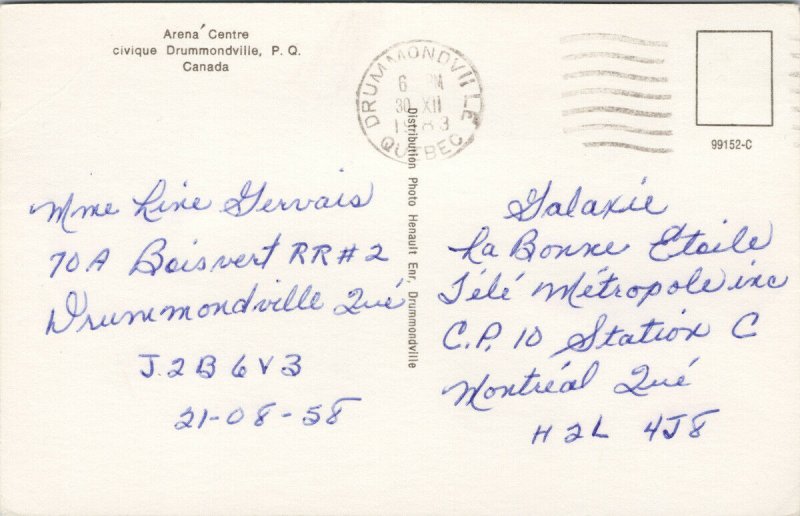 Arena Centre
civique Drummondville, P. Q.
Canada
DRUMMONDVILLE
6 PM
30 XII
1983
QUÉBEC
99152-C
Distribution Photo Henault Enr, Drummondville
Mme Line Gervais
70A Boisvert RR#2
Drummondville Qué
J2B 6V3
21-08-58
Galaxie
La Bonne Etoile
Télé Métropole inc
C.P. 10 Station C
Montréal Qué
H2L 4J8